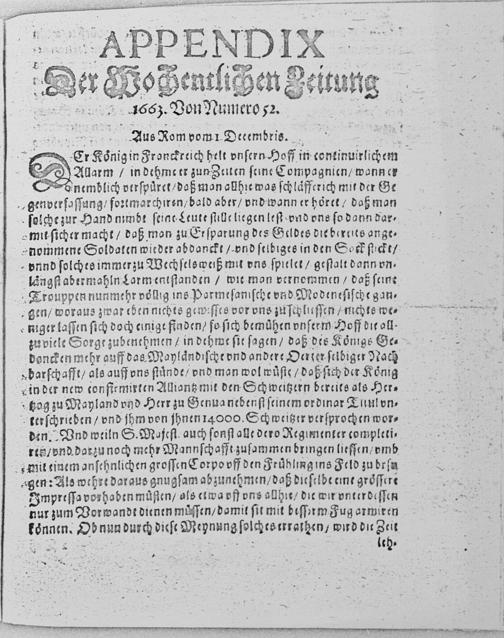 APPENDIX
Der Wochentlichen Zeitung
1663. Von Numero 52.
Aus Rom vom 1 Decembris.
DEr König in Franckreich helt vnsern Hoff in continuirlichem
Allarm / in dehme er zun Zeiten seine Compagnien / wann er
nemblich verspüret / daß man allhie was schläfferich mit der Ge
genverfassung / fortmarchiren / bald aber / vnd wann er höret / daß man
solche zur Hand nimbt seine Leute stille liegen lest vnd vns so dann dar-
mit sicher macht / daß man zu Ersparung des Geldes die bereits ange-
nommene Soldaten wieder abdanckt / vnd selbiges in den Sack steckt /
vnnd solches immerzu Wechselsweiß mit vns spielet / gestalt dann vn-
längst abermahln Larm entstanden / wie man vernommen / daß seine
Trouppen nunmehr völlig ins Parmesanische vnd Modenesische gan-
gen / woraus zwar eben nichts gewisses vor vns zuschliessen / nichts we-
niger lassen sich doch einige finden / so sich bemühen vnserm Hoff die all-
zuviele Sorge zubenehmen / in dehme sie sagen / daß des Königs Ge-
dancken mehr auff das Mayländische vnd andere Oerter selbiger Nach
barschafft / als auff vns stünde / vnd man wol wüste / daß sich der König
in der new confirmirten Alliantz mit den Schweitzern bereits als Her-
tzog zu Mayland vnd Herr zu Genua nebenst seinem ordinar Titul vn-
terschrieben / vnd ihm von ihnen 14000. Schweitzer versprochen wor-
den. Vnd weiln S. Majest. auch sonst alle dero Regimenter completi-
ren / vnd darzu noch mehr Mannschafft zusammen bringen liessen / vmb
mit einem ansehnlichen grossen Corpo off den Frühling ins Feld zu brin
gen: Als wehre daraus gnugsam abzunehmen / daß dieselbe eine grössere
Impressa vorhaben müsten / als etwa off vns allhie / die wir unterdessen
nur zum Vorwandt dienen müssen / damit sie mit besserm Fug armiren
können. Ob nun durch diese Meynung solches errathen / wird die Zeit
leh-